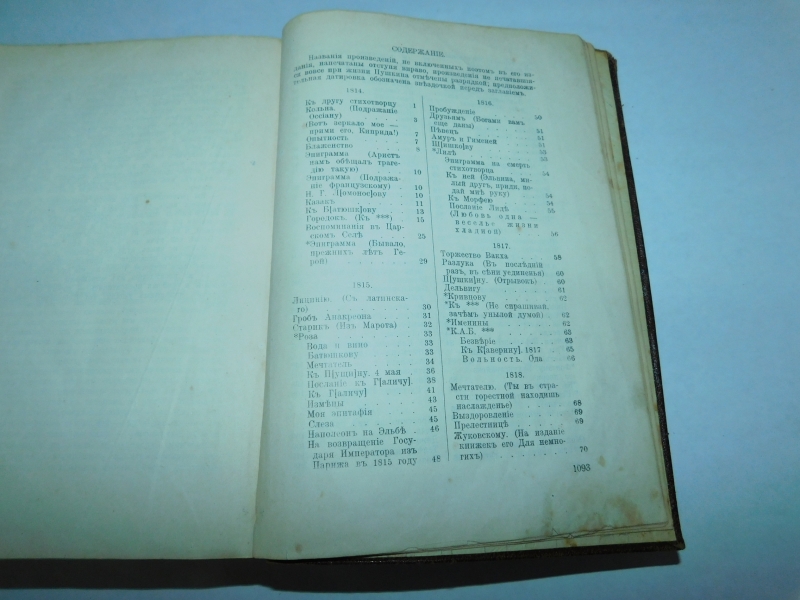 СОДЕРЖАНІЕ.
Названія произведеній, не включенныхъ поэтомъ въ его из-
данія, напечатаны отступя вправо, произведенія не печатавші-
яся вовсе при жизни Пушкина отмѣчены разрядкой; предположи-
тельная датировка обозначена звѣздочкой передъ заглавіемъ.
1814.
Къ другу стихотворцу 1
Кольна. (Подражаніе
Оссіану) 3
(Вотъ зеркало мое —
прими его, Киприда!) 7
Опытность 7
Блаженство 8
Эпиграмма (Аристъ
намъ обѣщалъ траге-
дію такую) 10
Эпиграмма (Подража-
ніе французскому) 10
И. Г. Л[омоносо]ву 10
Казакъ 11
Къ Б[атюшко]ву 13
Городокъ. (Къ ***) 15
Воспоминанія въ Цар-
скомъ Селѣ 25
*Эпиграмма (Бывало,
прежнихъ лѣтъ Ге-
рой) 29
1815.
Лицинію. (Съ латинска-
го) 30
Гробъ Анакреона 31
Старикъ (Изъ Марота) 32
*Роза 33
Вода и вино 33
Батюшкову 33
Мечтатель 34
Къ П[ущи]ну. 4 мая 36
Посланіе къ Г[аличу]. 38
Къ Г[аличу] 41
Измѣны 43
Моя эпитафія 45
Слеза 45
Наполеонъ на Эльбѣ 46
На возвращеніе Госу-
даря Императора изъ
Парижа въ 1815 году 48
1816.
Пробужденіе 50
Друзьямъ (Богами вамъ
еще даны) 51
Пѣвецъ 51
Амуръ и Гименей 51
Ш[ишко]ву 53
*Лилѣ 53
Эпиграмма на смерть
стихотворца 54
Къ ней (Эльвина, ми-
лый другъ, приди, по-
дай мнѣ руку) 54
Къ Морфею 54
Посланіе Лидѣ 55
(Любовь одна —
веселье жизни
хладной) 56
1817.
Торжество Вакха 58
Разлука (Въ послѣдній
разъ, въ сѣни уединенья) 60
П[ущи]ну. (Отрывокъ) 60
Дельвигу 61
*Кривцову 62
*Къ *** (Не спрашивай,
зачѣмъ унылой думой) 62
*Именины 62
*К.А.Б. *** 63
Безвѣріе 63
Къ К[аверину]. 1817 65
Вольность. Ода 66
1818.
Мечтателю. (Ты въ стра-
сти горестной находишь
наслажденье) 68
Выздоровленіе 69
Прелестницѣ 69
Жуковскому. (На изданіе
книжекъ его Для немно-
гихъ) 70
1093